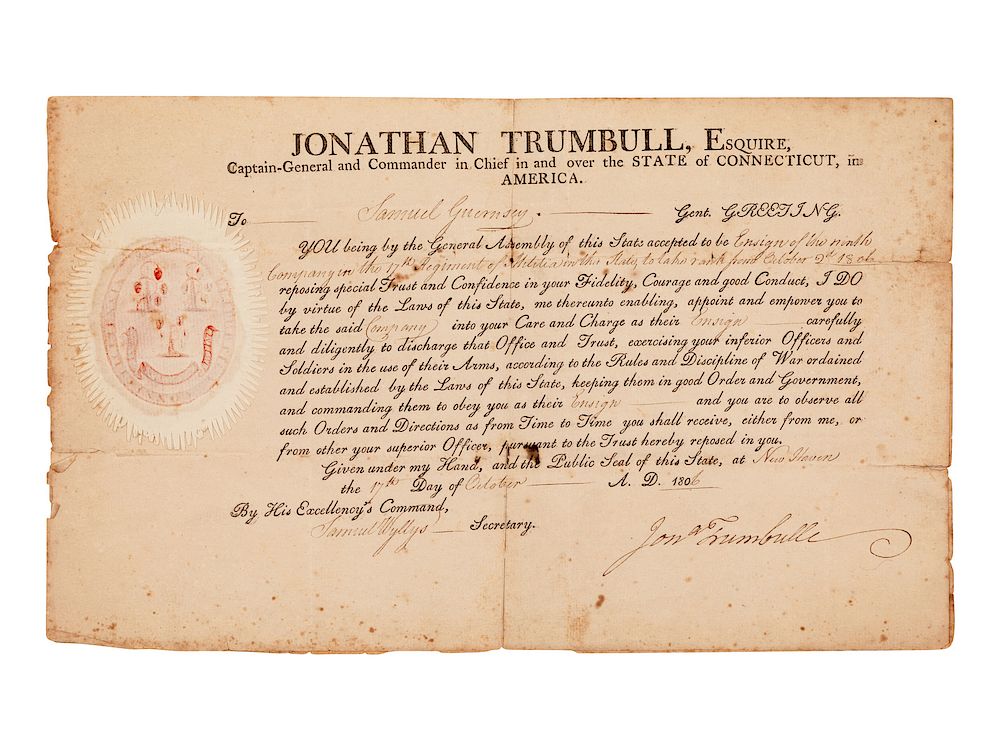 JONATHAN TRUMBULL, ESQUIRE,
Captain-General and Commander in Chief in and over the STATE of CONNECTICUT, in
AMERICA.
To Samuel Guernsey. Gent. GREETING.
YOU being by the General Assembly of this State accepted to be Ensign of the ninth
Company in the 17th Regiment of Militia in this State, to take rank from October 2d 1806
reposing special Trust and Confidence in your Fidelity, Courage and good Conduct, I DO
by virtue of the Laws of this State, me thereunto enabling, appoint and empower you to
take the said Company into your Care and Charge as their Ensign carefully
and diligently to discharge that Office and Trust, exercising your inferior Officers and
Soldiers in the use of their Arms, according to the Rules and Discipline of War ordained
and established by the Laws of this State, keeping them in good Order and Government,
and commanding them to obey you as their Ensign and you are to observe all
such Orders and Directions as from Time to Time you shall receive, either from me, or
from other your superior Officer, pursuant to the Trust hereby reposed in you.
Given under my Hand, and the Public Seal of this State, at New Haven
the 17th Day of October A. D. 1806
By His Excellency's Command,
Samuel Wyllys Secretary.
Jonª Trumbull